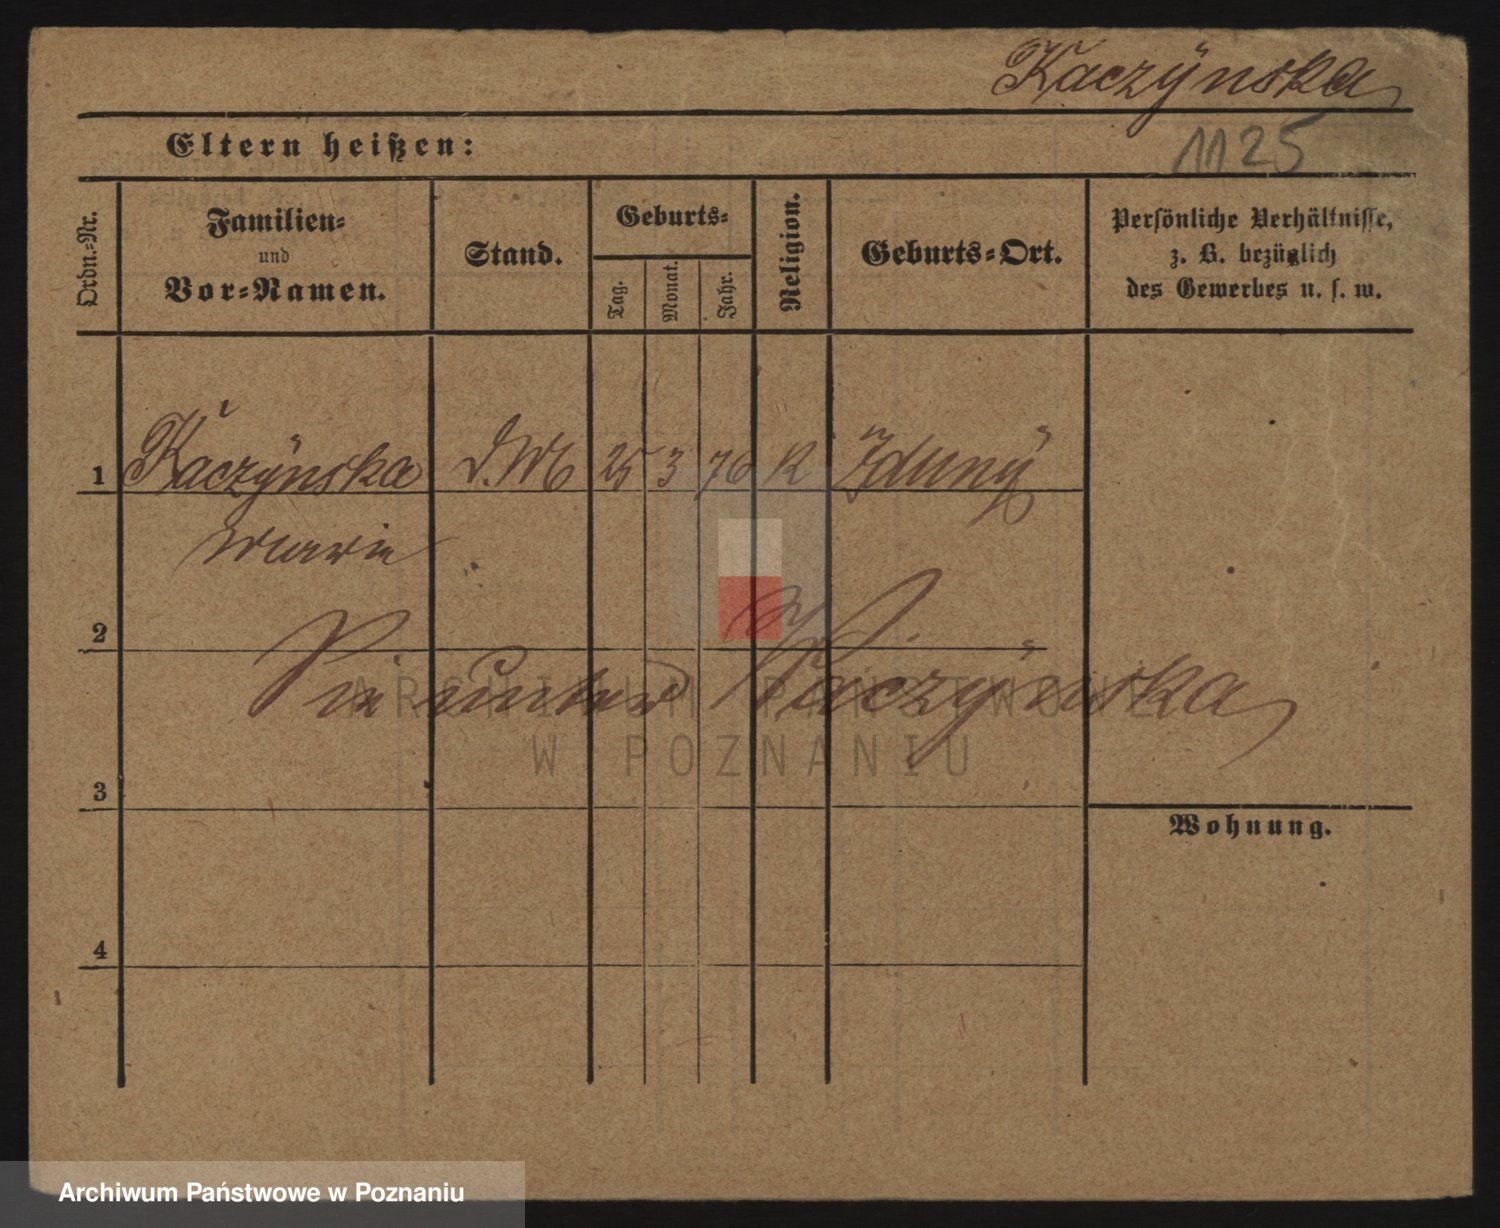 Kaczÿnska
1125
Eltern heißen:
Ordn.-Nr.
Familien-
und
Vor-Namen.
Stand.
Geburts-
Tag.
Monat.
Jahr.
Religion.
Geburts-Ort.
Persönliche Verhältnisse,
z. B. bezüglich
des Gewerbes u. s. w.
1 Kaczÿnska D.M 25 3 76 K Zdunÿ
Marie
2
Sie unter Kaczÿnska
ARCHIWUM PAŃSTWOWE
W POZNANIU
3
Wohnung.
4
Archiwum Państwowe w Poznaniu